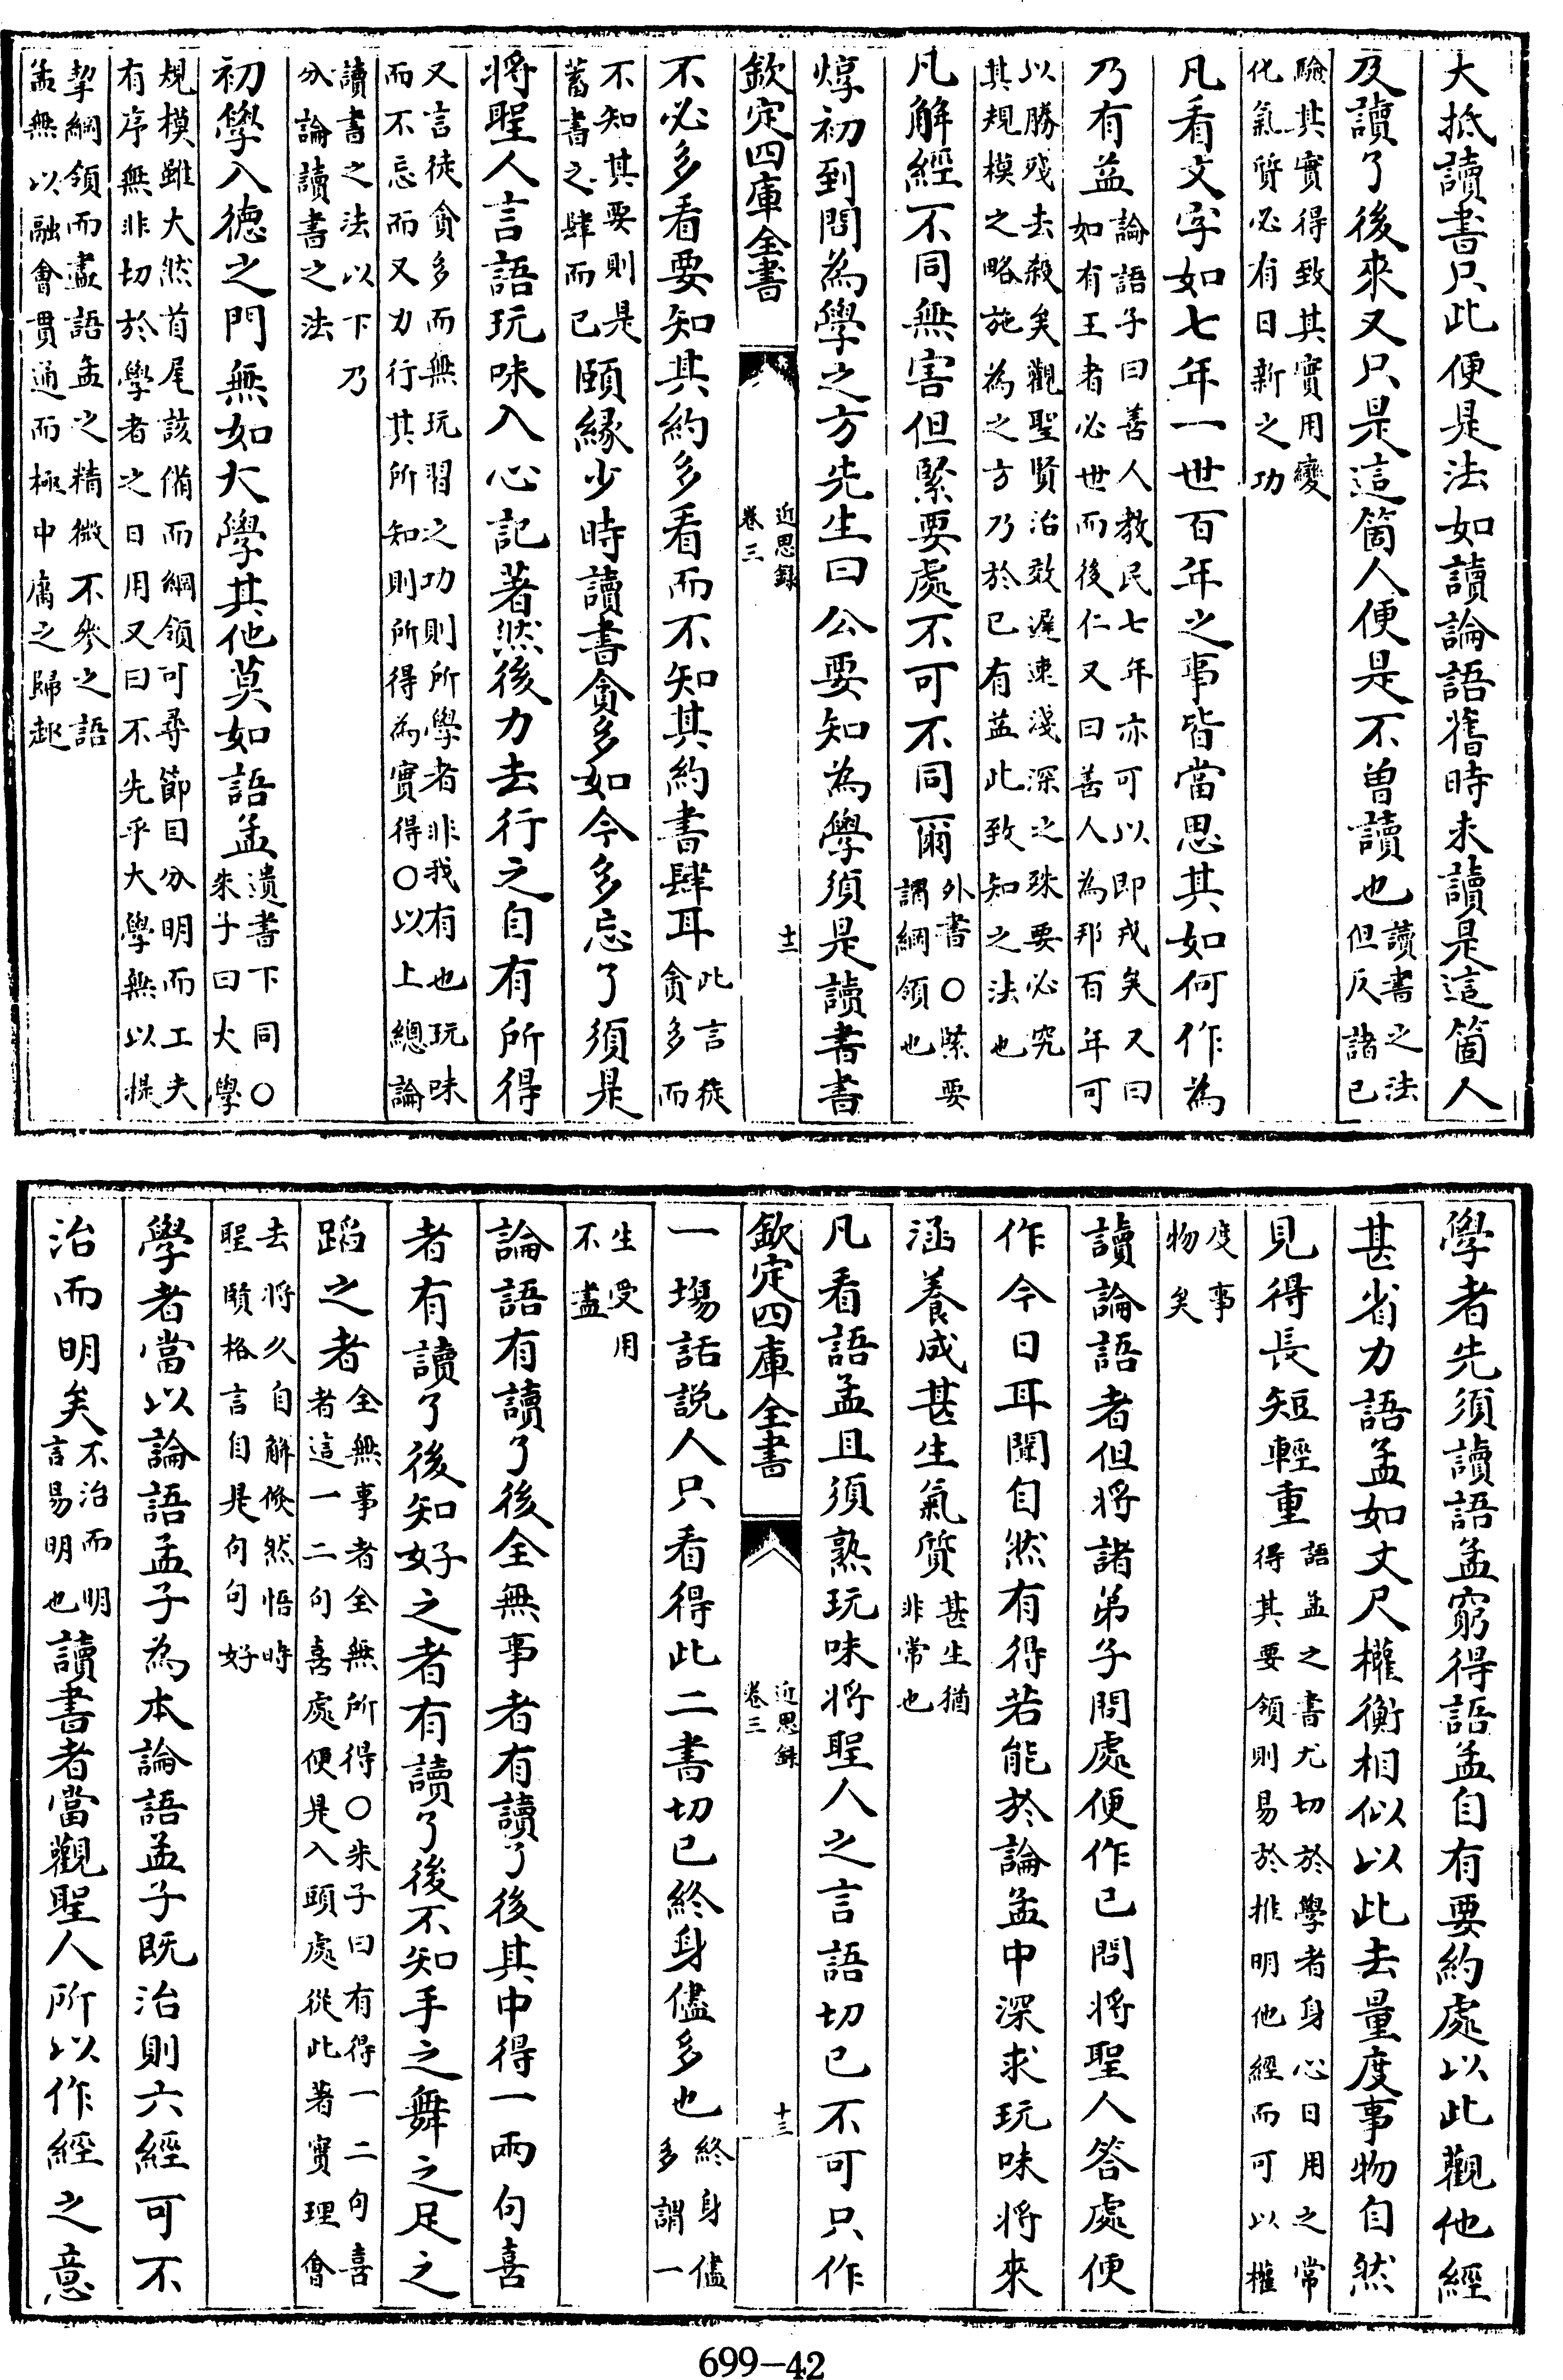 大抵讀書只此便是法如讀論語舊時未讀是這箇人
及讀了後來又只是這箇人便是不曾讀也讀書之法但反諸己
驗其實得致其實用變化氣質必有日新之功
凡看文字如七年一世百年之事皆當思其如何作為
乃有益論語子曰善人教民七年亦可以即戎矣又曰如有王者必世而後仁又曰善人為邦百年可
以勝殘去殺矣觀聖賢治效遲速淺深之殊要必究其規模之略施為之方乃於己有益此致知之法也
凡解經不同無害但緊要處不可不同爾外書○緊要謂綱領也
焞初到問為學之方先生曰公要知為學須是讀書書
欽定四庫全書 近思錄卷三 十二
不必多看要知其約多看而不知其約書肆耳此言徒貪多而
不知其要則是蓄書之肆而已頤緣少時讀書貪多如今多忘了須是
將聖人言語玩味入心記著然後力去行之自有所得
又言徒貪多而無玩習之功則所學者非我有也玩味而不忘而又力行其所知則所得為實得○以上總論
讀書之法以下乃分論讀書之法
初學入德之門無如大學其他莫如語孟遺書下同○朱子曰大學
規模雖大然首尾該備而綱領可尋節目分明而工夫有序無非切於學者之日用又曰不先乎大學無以提
挈綱領而盡語孟之精微不參之語孟無以融會貫通而極中庸之歸趣
學者先須讀語孟窮得語孟自有要約處以此觀他經
甚省力語孟如丈尺權衡相似以此去量度事物自然
見得長短輕重語孟之書尤切於學者身心日用之常得其要領則易於推明他經而可以權
度事物矣
讀論語者但將諸弟子問處便作己問將聖人答處便
作今日耳聞自然有得若能於論孟中深求玩味將來
涵養成甚生氣質甚生猶非常也
凡看語孟且須熟玩味將聖人之言語切己不可只作
欽定四庫全書 近思錄卷三 十三
一場話説人只看得此二書切己終身儘多也終身儘多謂一
生受用不盡
論語有讀了後全無事者有讀了後其中得一兩句喜
者有讀了後知好之者有讀了後不知手之舞之足之
蹈之者全無事者全無所得○朱子曰有得一二句喜者這一二句喜處便是入頭處從此著實理會
去將久自解倐然悟時聖賢格言自是句句好
學者當以論語孟子為本論語孟子既治則六經可不
治而明矣不治而明言易明也讀書者當觀聖人所以作經之意
699-42